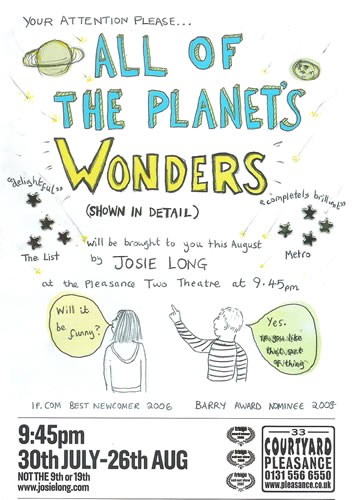 YOUR ATTENTION PLEASE...
ALL OF
THE PLANET'S
WONDERS
(SHOWN IN DETAIL)
"delightful"
"completely brilliant"
The List
Metro
will be brought to you this August
by JOSIE LONG
at the Pleasance Two Theatre at 9.45pm
Will it
be
funny?
Yes.
if you like
this sort
of thing
IF.COM BEST NEWCOMER 2006
BARRY AWARD NOMINEE 2008
9:45pm
30th JULY-26th AUG
NOT THE 9th or 19th
www.josielong.com
fringe
fringe
fringe
33
COURTYARD
PLEASANCE
0131 556 6550
www.pleasance.co.uk